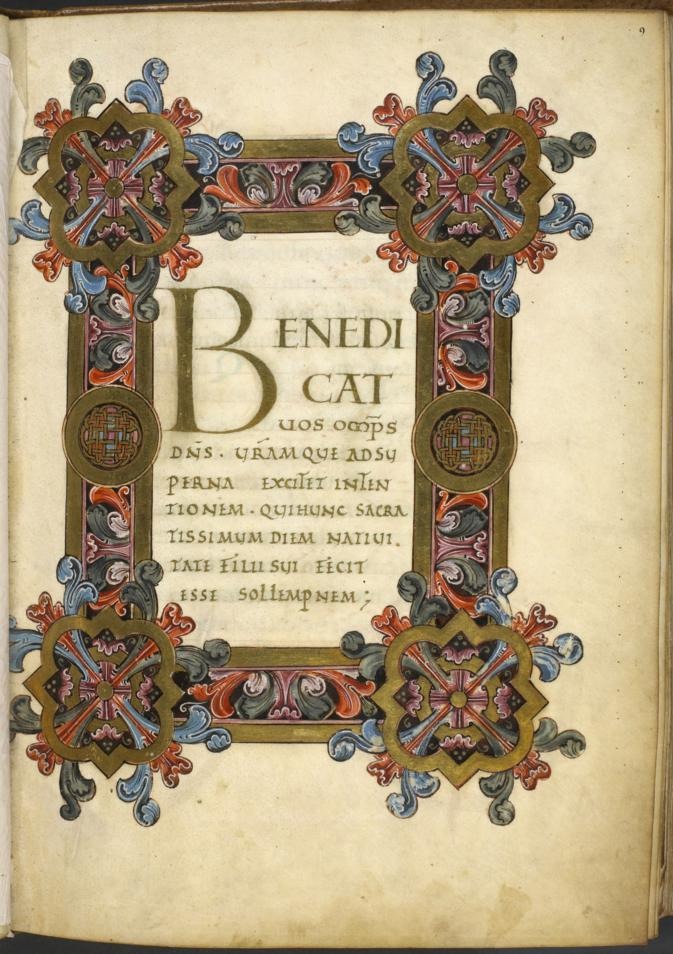 9
BENEDI
CAT
UOS OMP̄S
DN̄S . UR̄AM QUE AD SU
PERNA EXCITET INTEN
TIONEM . QUI HUNC SACRA
TISSIMUM DIEM NATIUI .
TATE FILII SUI FECIT
ESSE SOLLEMPNEM ;